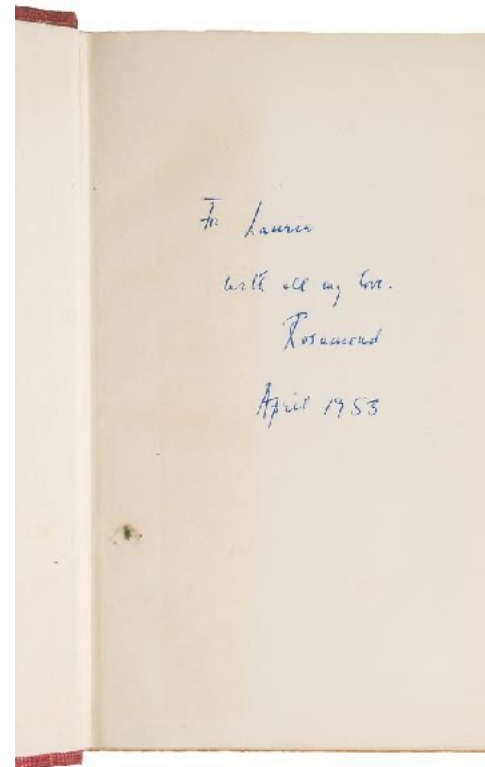 For Laurie
with all my love.
Rosamond
April 1953